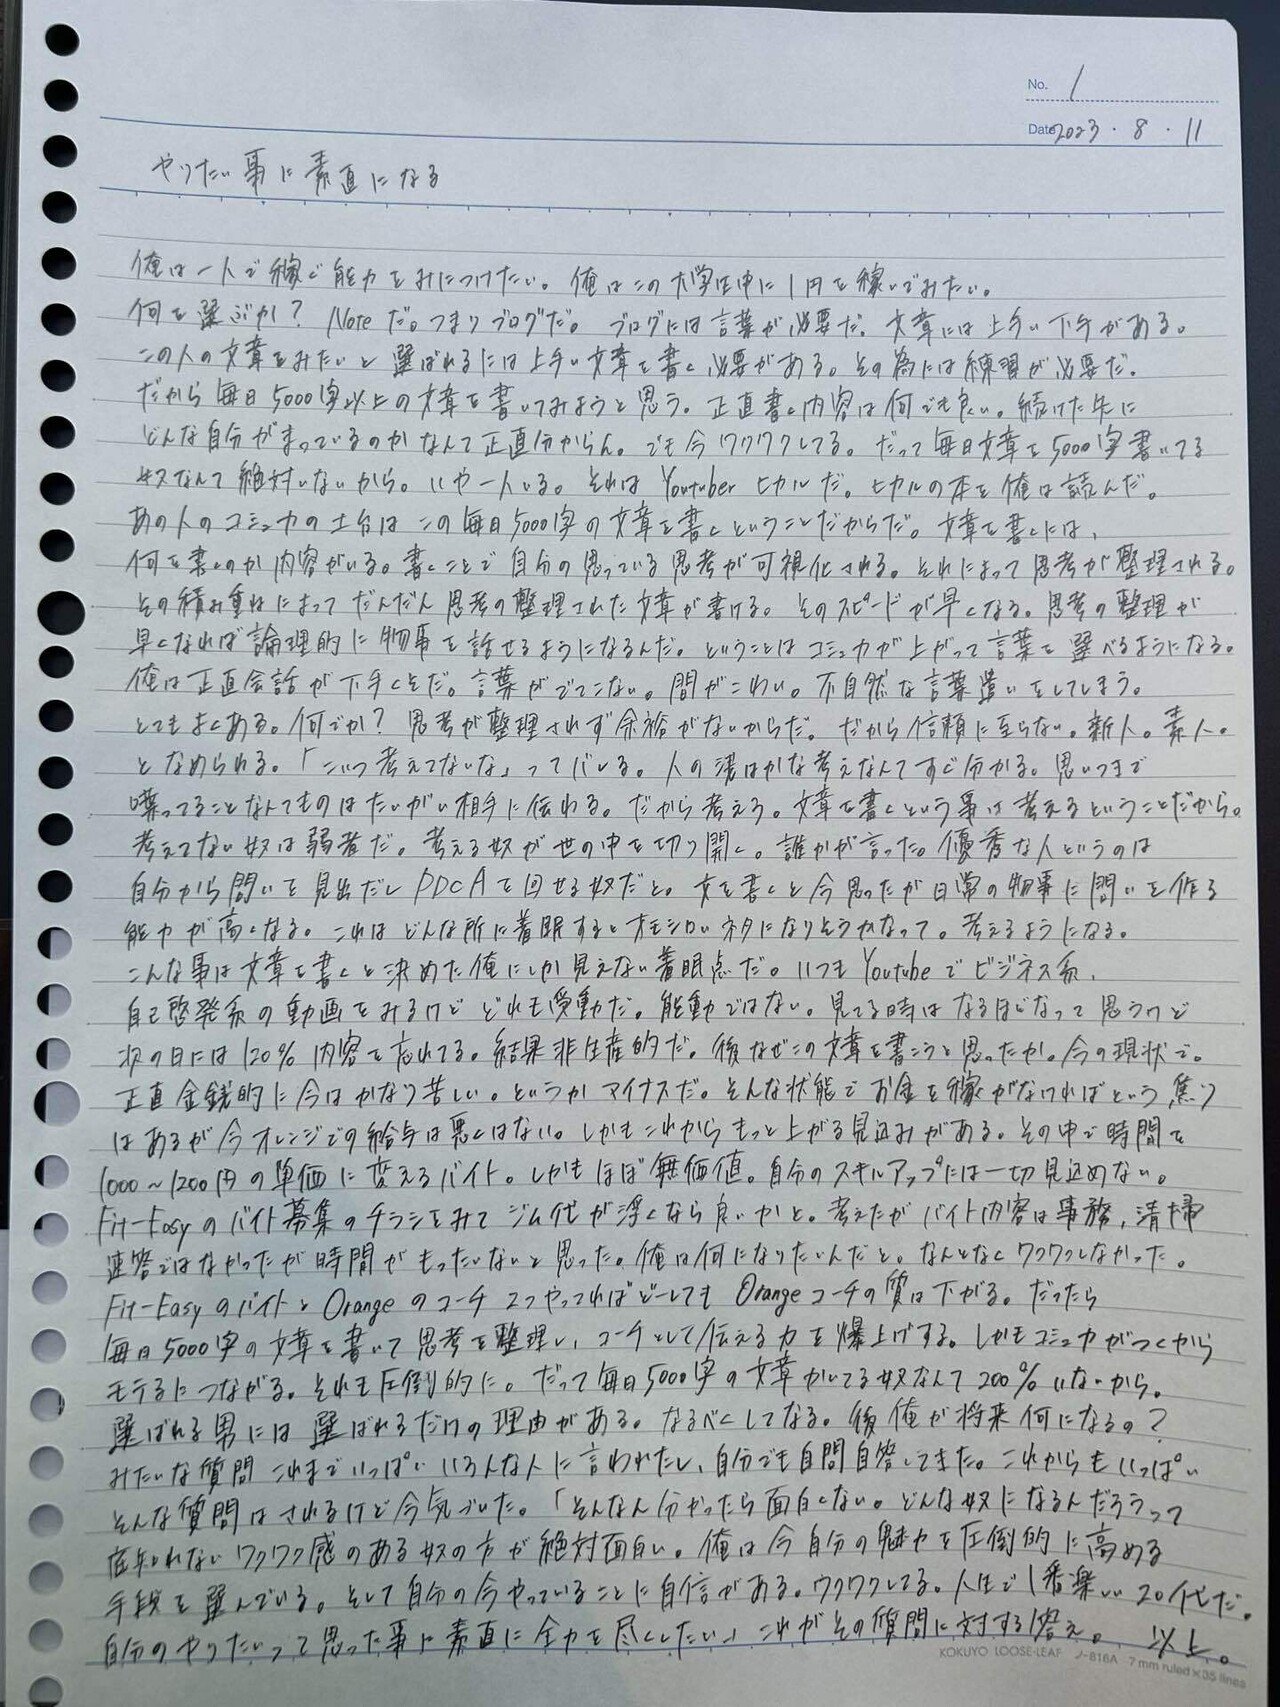 No. 1
Date 2023・8・11
やりたい事に素直になる
俺は一人で稼ぐ能力をみにつけたい。俺はこの大学生中に1円を稼いでみたい。
何を選ぶか? Noteだ。つまりブログだ。ブログには言葉が必要だ。文章には上手い下手がある。
この人の文章をみたいと選ばれるには上手い文章を書く必要がある。その為には練習が必要だ。
だから毎日5000字以上の文章を書いてみようと思う。正直書く内容は何でも良い。続けた先に
どんな自分がまっているのかなんて正直分からん。でも今ワクワクしてる。だって毎日文章を5000字書いてる
奴なんて絶対いないから。いや一人いる。それはYoutuberヒカルだ。ヒカルの本を俺は読んだ。
あの人のコミュ力の土台はこの毎日5000字の文章を書くということだからだ。文章を書くには、
何を書くのか内容がいる。書くことで自分の思っている思考が可視化される。それによって思考が整理される。
その積み重ねによってだんだん思考の整理された文章が書ける。そのスピードが早くなる。思考の整理が
早くなれば論理的に物事を話せるようになるんだ。ということはコミュ力が上がって言葉を選べるようになる。
俺は正直会話が下手くそだ。言葉がでてこない。間がこわい。不自然な言葉遣いをしてしまう。
とてもよくある。何でか? 思考が整理されず余裕がないからだ。だから信頼に至らない。新人。素人。
となめられる。「こいつ考えてないな」ってバレる。人の浅はかな考えなんてすぐ分かる。思いつきで
喋ってることなんてものはたいがい相手に伝わる。だから考えろ。文章を書くという事は考えるということだから。
考えてない奴は弱者だ。考える奴が世の中を切り開く。誰かが言った。優秀な人というのは
自分から問いを見出だしPDCAを回せる奴だと。文を書くと今思ったが日常の物事に問いを作る
能力が高くなる。これはどんな所に着眼するとオモシロいネタになりそうかなって。考えるようになる。
こんな事は文章を書くと決めた俺にしか見えない着眼点だ。いつもYoutubeでビジネス系、
自己啓発系の動画をみるけどどれも受動だ。能動ではない。見てる時はなるほどなって思うけど
次の日には120%内容を忘れてる。結果非生産的だ。後なぜこの文章を書こうと思ったか。今の現状で。
正直金銭的に今はかなり苦しい。というかマイナスだ。そんな状態でお金を稼がなければという焦り
はあるが今オレンジでの給与は悪くはない。しかもこれからもっと上がる見込みがある。その中で時間を
1000〜1200円の単価に変えるバイト。しかもほぼ無価値。自分のスキルアップには一切見込めない。
Fit-Easyのバイト募集のチラシをみてジム代が浮くなら良いかと。考えたがバイト内容は事務,清掃
速答ではなかったが時間がもったいないと思った。俺は何になりたいんだと。なんとなくワクワクしなかった。
Fit-EasyのバイトとOrangeのコーチ2つやってればどーしてもOrangeコーチの質は下がる。だったら
毎日5000字の文章を書いて思考を整理し、コーチとして伝える力を爆上げする。しかもコミュ力がつくから
モテるにつながる。それも圧倒的に。だって毎日5000字の文章かいてる奴なんて200%いないから。
選ばれる男には選ばれるだけの理由がある。なるべくしてなる。後俺が将来何になるの?
みたいな質問これまでいっぱいいろんな人に言われたし、自分でも自問自答してきた。これからもいっぱい
そんな質問はされるけど今気づいた。「そんなん分かったら面白くない。どんな奴になるんだろうって
底知れないワクワク感のある奴の方が絶対面白い。俺は今自分の魅力を圧倒的に高める
手段を選んでいる。そして自分の今やっていることに自信がある。ワクワクしてる。人生で1番楽しい20代だ。
自分のやりたいって思った事に素直に全力を尽くしたい」これがその質問に対する答え。 以上。
KOKUYO LOOSE-LEAF ノ-816A 7mm ruled×35 lines